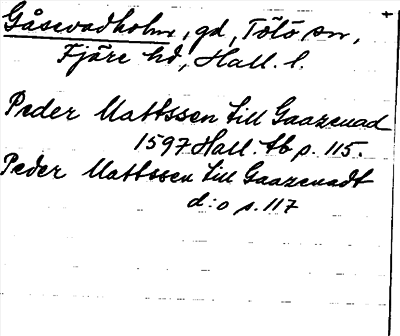 Gåsevadholm, gd, Tölö sn,
Fjäre hd, Hall. l.
Peder Mattssen till Gaazeuad
1597 Hall. tb p. 115.
Peder Mattssen till Gaazeuadt
d:o s. 117